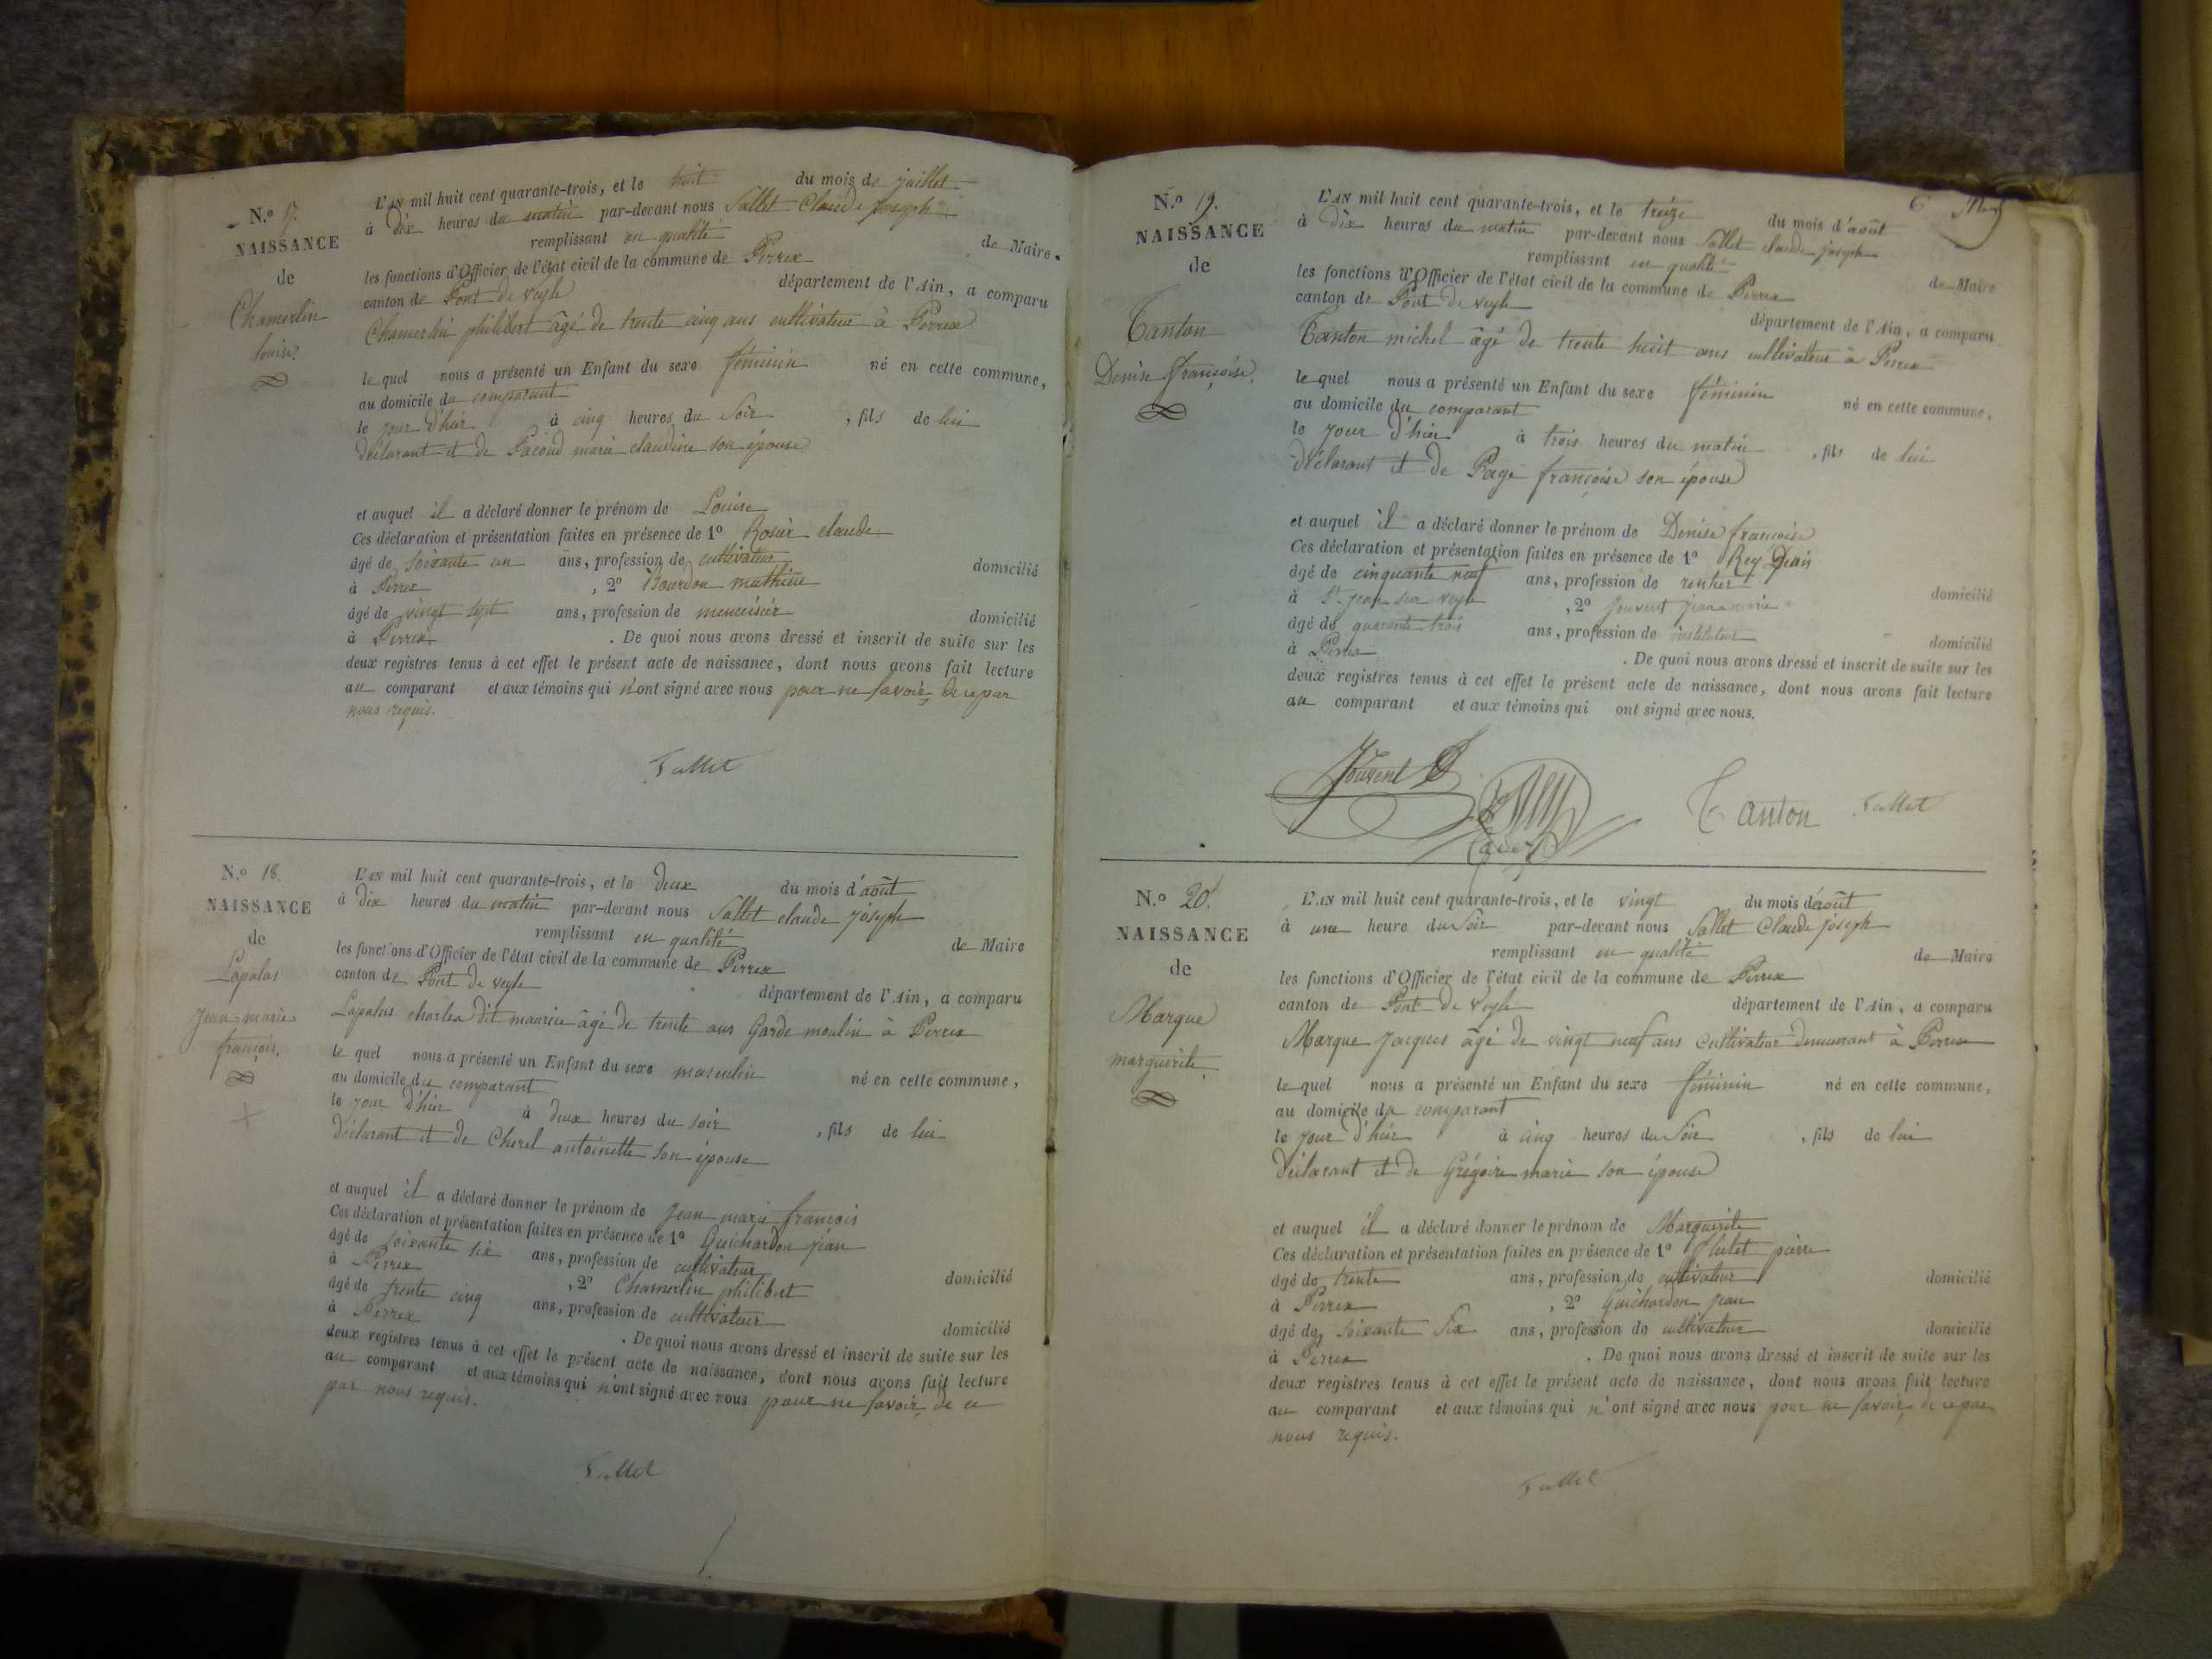 N.º 17.
NAISSANCE
de
Chamerlin
louise.
L'AN mil huit cent quarante-trois, et le huit du mois de juillet
à Dix heures du matin par-devant nous Sallet Claude joseph
remplissant en qualité de Maire
les fonctions d'Officier de l'état civil de la commune de Perrex
canton de Pont de veyle département de l'Ain, a comparu
Chamerlin philibert âgé de trente cinq ans cultivateur à Perrex
le quel nous a présenté un Enfant du sexe féminin né en cette commune,
au domicile du comparant
le jour d'hier à cinq heures du Soir, fils de lui
déclarant et de Pacoud marie claudine son épouse
et auquel il a déclaré donner le prénom de Louise
Ces déclaration et présentation faites en présence de 1º Rosier claude
âgé de soixante un ans, profession de cultivateur domicilié
à Perrex, 2º Bourdon mathieu
âgé de vingt sept ans, profession de menuisier domicilié
à Perrex. De quoi nous avons dressé et inscrit de suite sur les
deux registres tenus à cet effet le présent acte de naissance, dont nous avons fait lecture
au comparant et aux témoins qui n'ont signé avec nous pour ne savoir, de ce par
nous requis.
Sallet
N.º 18.
NAISSANCE
de
Lapalus
jean marie
françois.
L'AN mil huit cent quarante-trois, et le deux du mois d'août
à dix heures du matin par-devant nous Sallet claude joseph
remplissant en qualité de Maire
les fonctions d'Officier de l'état civil de la commune de Perrex
canton de Pont de veyle département de l'Ain, a comparu
Lapalus charles dit maurice âgé de trente ans Garde moulin à Perrex
le quel nous a présenté un Enfant du sexe masculin né en cette commune,
au domicile du comparant
le jour d'hier à deux heures du soir, fils de lui
déclarant et de Cherel antoinette son épouse
et auquel il a déclaré donner le prénom de jean marie françois
Ces déclaration et présentation faites en présence de 1º Guichardon jean
âgé de soixante six ans, profession de cultivateur domicilié
à Perrex, 2º Chamerlin philibert
âgé de trente cinq ans, profession de cultivateur domicilié
à Perrex. De quoi nous avons dressé et inscrit de suite sur les
deux registres tenus à cet effet le présent acte de naissance, dont nous avons fait lecture
au comparant et aux témoins qui n'ont signé avec nous pour ne savoir, de ce
par nous requis.
Sallet
6
N.º 19.
NAISSANCE
de
Tanton
Denise françoise.
L'AN mil huit cent quarante-trois, et le treize du mois d'août
à Dix heures du matin par-devant nous Sallet claude joseph
remplissant en qualité de Maire
les fonctions d'Officier de l'état civil de la commune de Perrex
canton de Pont de veyle département de l'Ain, a comparu
Tanton michel âgé de trente huit ans cultivateur à Perrex
le quel nous a présenté un Enfant du sexe féminin né en cette commune,
au domicile du comparant
le jour d'hier à trois heures du matin, fils de lui
déclarant et de Page françoise son épouse
et auquel il a déclaré donner le prénom de Denise françoise
Ces déclaration et présentation faites en présence de 1º Rey Denis
âgé de cinquante neuf ans, profession de rentier domicilié
à St jean sur veyle, 2º Jouvent jean marie
âgé de quarante trois ans, profession de instituteur domicilié
à Perrex. De quoi nous avons dressé et inscrit de suite sur les
deux registres tenus à cet effet le présent acte de naissance, dont nous avons fait lecture
au comparant et aux témoins qui ont signé avec nous.
Jouvent Tanton Sallet
N.º 20.
NAISSANCE
de
Marque
marguerite.
L'AN mil huit cent quarante-trois, et le vingt du mois d'août
à une heure du Soir par-devant nous Sallet Claude joseph
remplissant en qualité de Maire
les fonctions d'Officier de l'état civil de la commune de Perrex
canton de Pont de Veyle département de l'Ain, a comparu
Marque jacques âgé de vingt neuf ans Cultivateur demeurant à Perrex
le quel nous a présenté un Enfant du sexe féminin né en cette commune,
au domicile du comparant
le jour d'hier à cinq heures du Soir, fils de lui
déclarant et de Grégoire marie son épouse
et auquel il a déclaré donner le prénom de Marguerite
Ces déclaration et présentation faites en présence de 1º pierre
âgé de trente ans, profession de cultivateur domicilié
à Perrex, 2º Guichardon jean
âgé de soixante Six ans, profession de cultivateur domicilié
à Perrex. De quoi nous avons dressé et inscrit de suite sur les
deux registres tenus à cet effet le présent acte de naissance, dont nous avons fait lecture
au comparant et aux témoins qui n'ont signé avec nous pour ne savoir, de ce par
nous requis.
Sallet